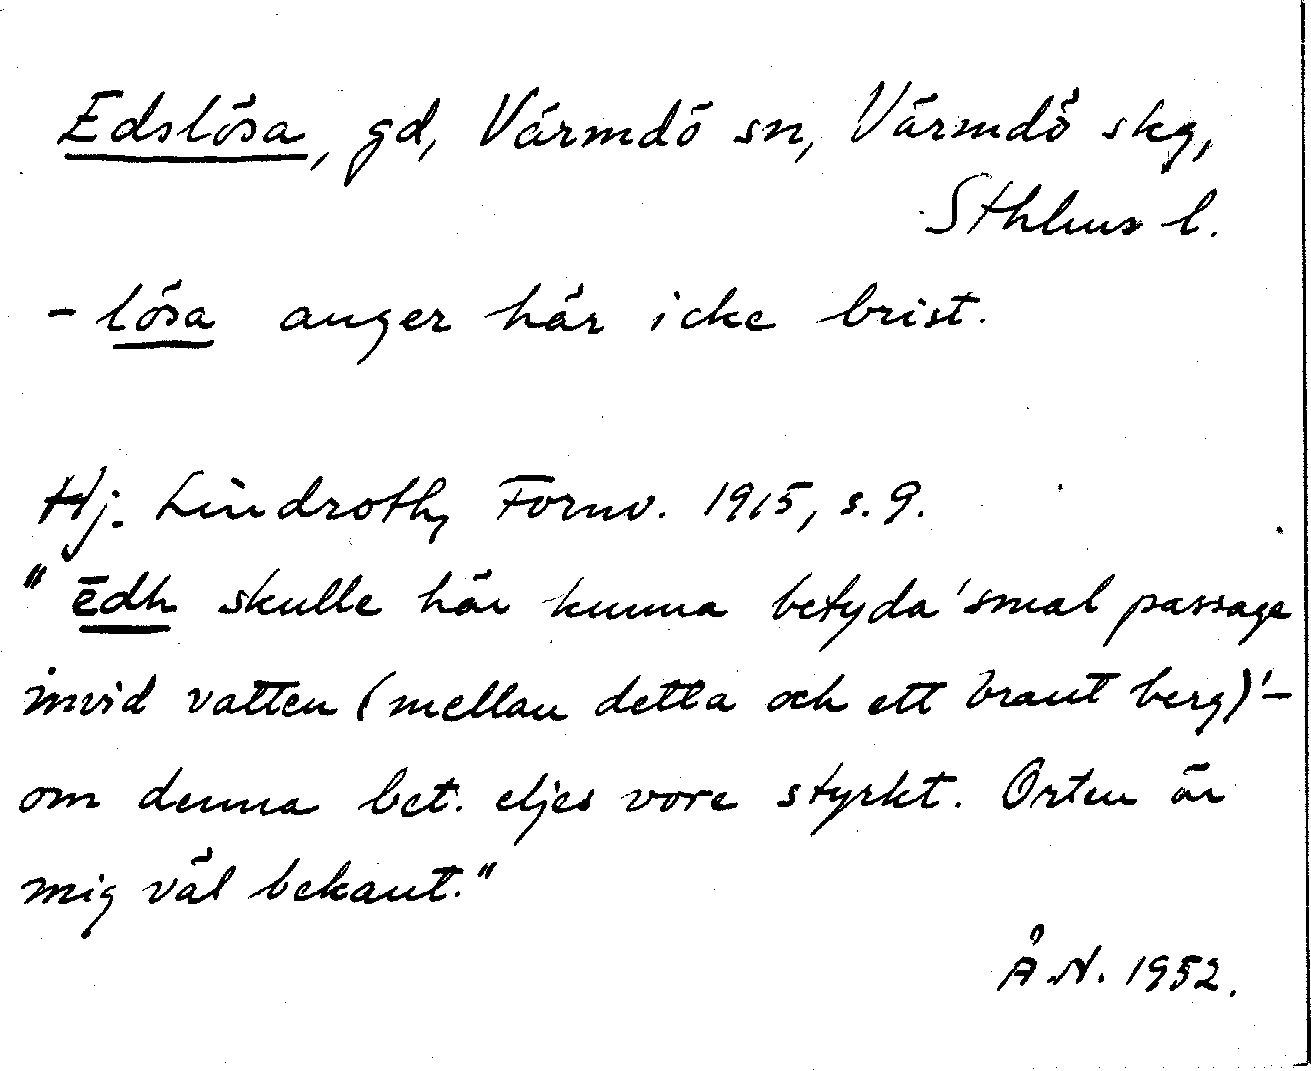 Edslösa, gd, Värmdö sn, Värmdö skg,
Sthlms l.
-lösa anger här icke brist.
Hj. Lindroth, Fornv. 1915, s. 9.
"ēdh skulle här kunna betyda 'smal passage
invid vatten (mellan detta och ett brant berg)'-
om denna bet. eljes vore styrkt. Orten är
mig väl bekant."
Å N. 1952.